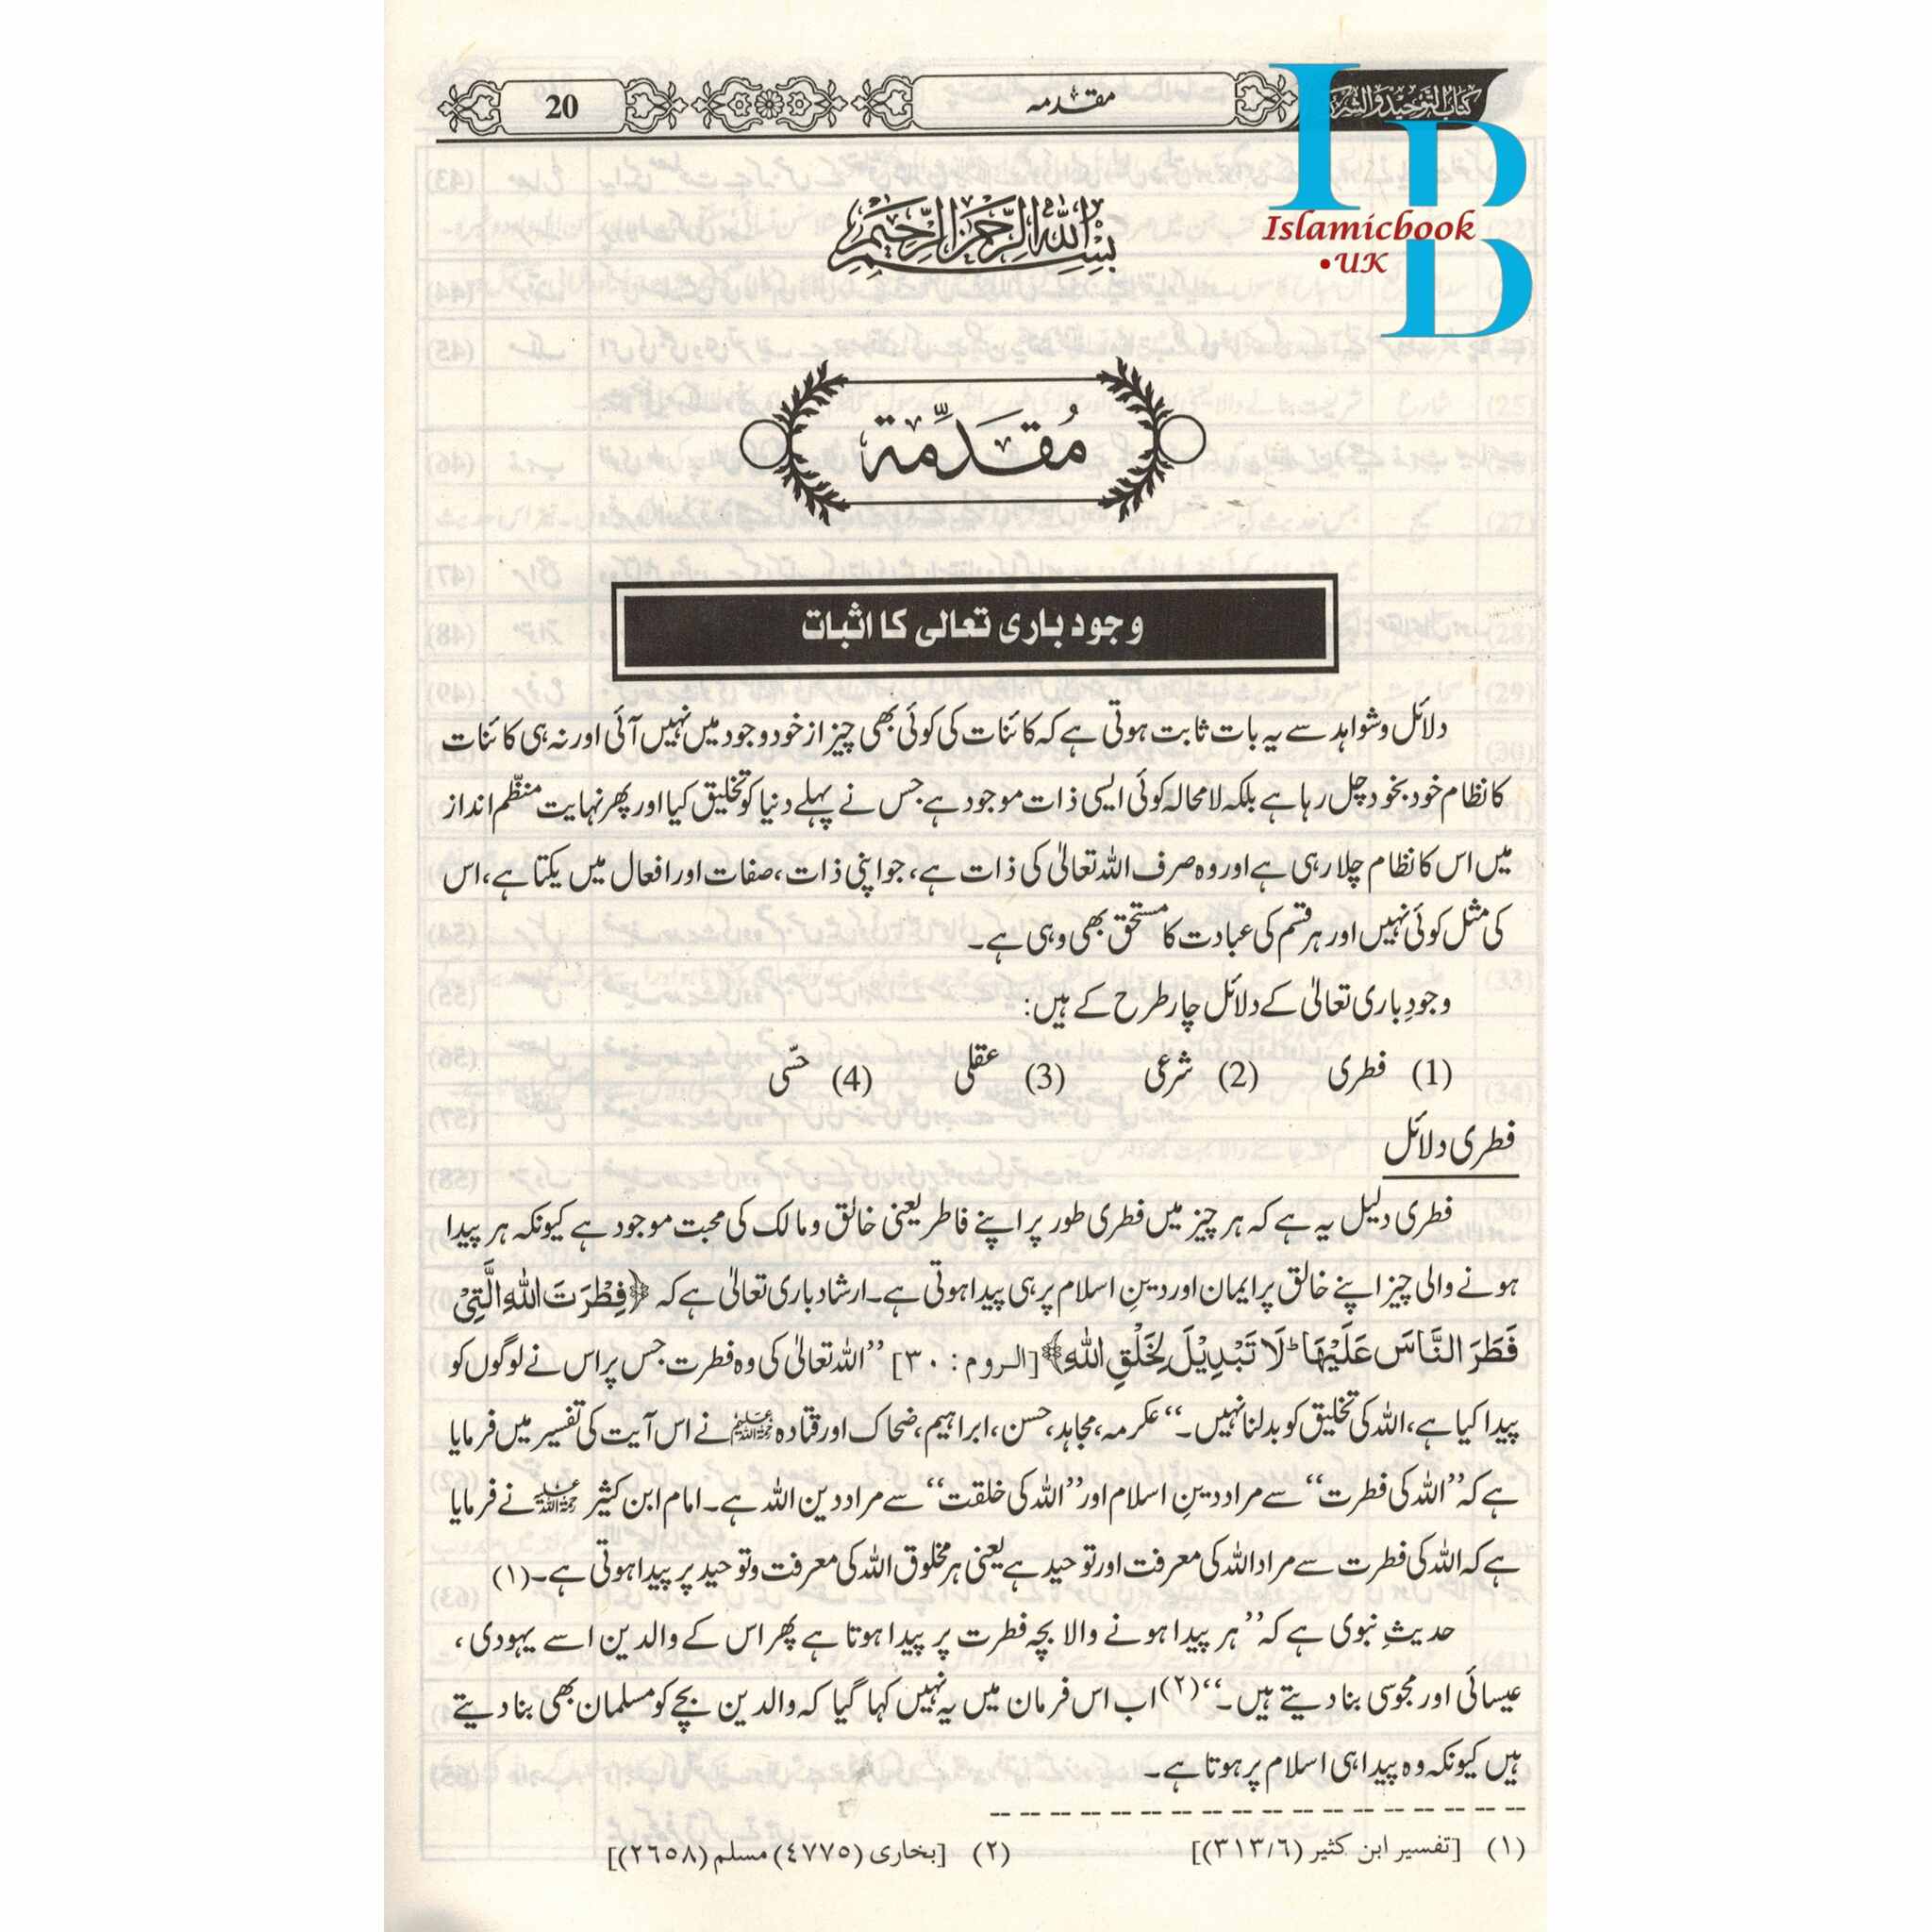 كتاب التوحيد والشرك
مقدمہ
20
Islamicbook
.UK
بسم الله الرحمن الرحيم
مُقدِّمۃ
وجود باری تعالی کا اثبات
دلائل وشواہد سے یہ بات ثابت ہوتی ہے کہ کائنات کی کوئی بھی چیز از خود وجود میں نہیں آئی اور نہ ہی کائنات
کا نظام خود بخود چل رہا ہے بلکہ لامحالہ کوئی ایسی ذات موجود ہے جس نے پہلے دنیا کو تخلیق کیا اور پھر نہایت منظّم انداز
میں اس کا نظام چلا رہی ہے اور وہ صرف اللہ تعالیٰ کی ذات ہے، جو اپنی ذات، صفات اور افعال میں یکتا ہے، اس
کی مثل کوئی نہیں اور ہر قسم کی عبادت کا مستحق بھی وہی ہے۔
وجودِ باری تعالیٰ کے دلائل چار طرح کے ہیں:
(1) فطری (2) شرعی (3) عقلی (4) حسّی
فطری دلائل
فطری دلیل یہ ہے کہ ہر چیز میں فطری طور پر اپنے فاطر یعنی خالق و مالک کی محبت موجود ہے کیونکہ ہر پیدا
ہونے والی چیز اپنے خالق پر ایمان اور دینِ اسلام پر ہی پیدا ہوتی ہے۔ ارشاد باری تعالیٰ ہے کہ ﴿فِطْرَتَ اللّٰهِ الَّتِیْ
فَطَرَ النَّاسَ عَلَیْهَا ؕ لَا تَبْدِیْلَ لِخَلْقِ اللّٰهِ﴾ [الروم: ٣٠] ’’اللہ تعالیٰ کی وہ فطرت جس پر اس نے لوگوں کو
پیدا کیا ہے، اللہ کی تخلیق کو بدلنا نہیں۔‘‘ عکرمہ، مجاہد، حسن، ابراہیم، ضحاک اور قتادہ رحمہم اللہ نے اس آیت کی تفسیر میں فرمایا
ہے کہ ’’اللہ کی فطرت‘‘ سے مراد دینِ اسلام اور ’’اللہ کی خلقت‘‘ سے مراد دین اللہ ہے۔ امام ابن کثیر رحمہ اللہ نے فرمایا
ہے کہ اللہ کی فطرت سے مراد اللہ کی معرفت اور توحید ہے یعنی ہر مخلوق اللہ کی معرفت و توحید پر پیدا ہوتی ہے۔ (١)
حدیثِ نبوی ہے کہ ’’ہر پیدا ہونے والا بچہ فطرت پر پیدا ہوتا ہے پھر اس کے والدین اسے یہودی،
عیسائی اور مجوسی بنا دیتے ہیں۔‘‘ (٢) اب اس فرمان میں یہ نہیں کہا گیا کہ والدین بچے کو مسلمان بھی بنا دیتے
ہیں کیونکہ وہ پیدا ہی اسلام پر ہوتا ہے۔
(١) [تفسیر ابن کثیر (٣١٣/٦)] (٢) [بخاری (٤٧٧٥) مسلم (٢٦٥٨)]